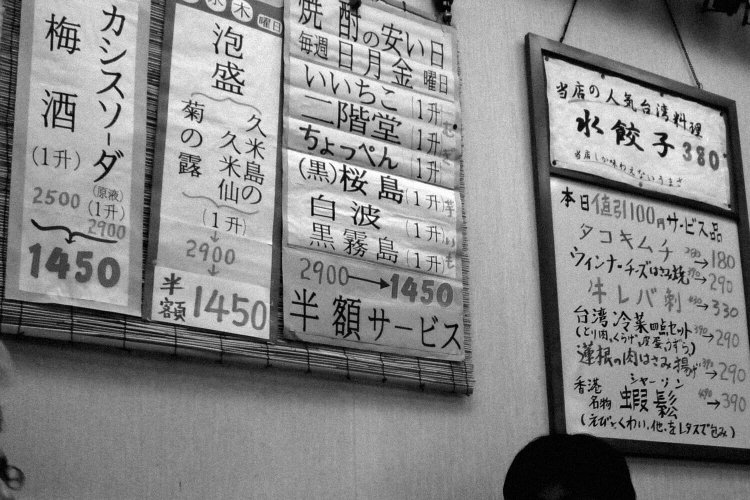 カシスソーダ
(原液)
(1升)
2900
梅酒
(1升)
2500
1450
水木曜日
泡盛
久米島の
久米仙
菊の露
(1升)
2900
半額1450
焼酎の安い日
毎週日月金曜日
いいちこ(1升)
二階堂(1升)
ちょっぺん(1升)
(黒)桜島(1升)芋
白波(1升)
黒霧島(1升)
2900→1450
半額サービス
当店の人気台湾料理
水餃子380
当店しか味わえないうまさ
本日値引100円サービス品
タコキムチ 280→180
ウィンナーチーズはさみ焼 390→290
牛レバ刺 430→330
台湾冷菜四点セット 390→290
(とり肉、くらげ、皮蛋、うずら)
蓮根の肉はさみ揚げ 390→290
香港名物 蝦鬆 シャーソン 490→390
(えびとくわい、他、をレタスで包み)